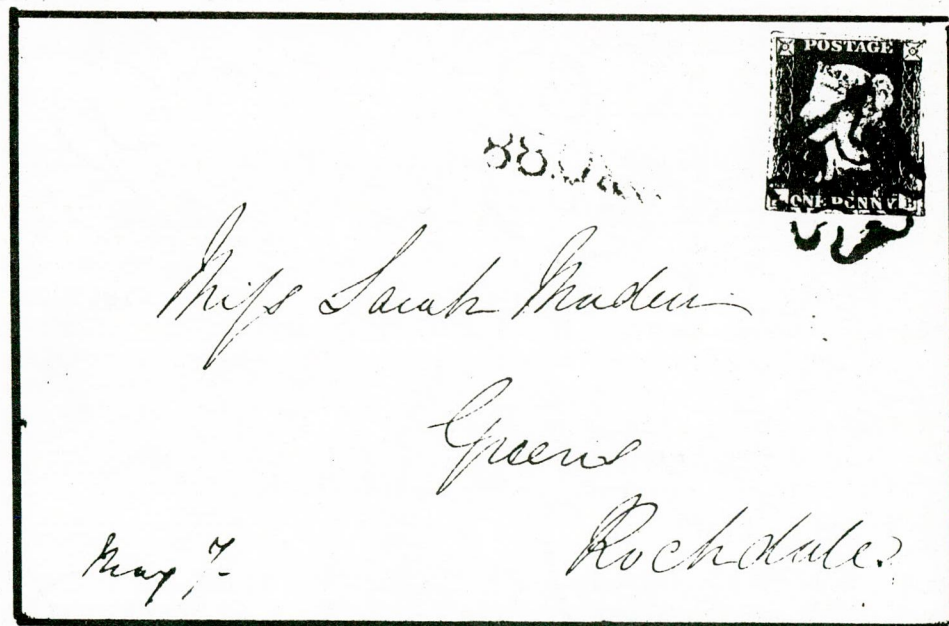 POSTAGE
ONE PENNY B
Miss Sarah Maden
Greens
Rochdale
May 7